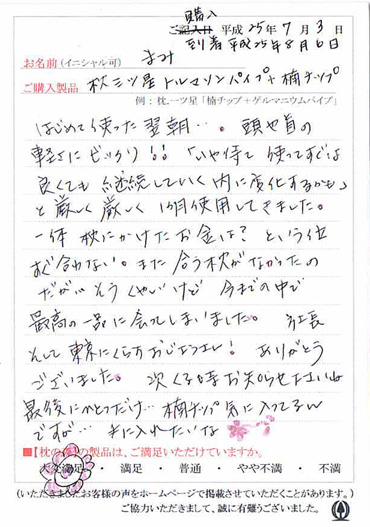 購入
ご記入日 平成25年7月3日
到着 平成25年8月6日
お名前(イニシャル可) まみ
ご購入製品 枕三ツ星 トルマリンパイプ+楠チップ
例:枕一ツ星「楠チップ+ゲルマニウムパイプ」
はじめて使った翌朝…。頭や首の
軽さにビックリ!!「いや待て 使ってすぐは
良くても 継続していく内に変化するかも」
と厳しく厳しく 1ヶ月使用してきました。
一体 枕にかけたお金は? という位
まだ合わない。また 合う枕がなかったの
だが… そう くやしいけど 今までの中で
最高の一品に会ってしまいました。
そして東京に ありがとう
ございました。次くる時お知らせ下さいね
最後にひとつだけ…楠チップ気に入ってるん
ですが… 手に入れたいな
■【枕のの製品は、ご満足いただけていますか。
大変満足・満足・普通・やや不満・不満
(いただきましたお客様の声をホームページで掲載させていただくことがあります。)
ご協力いただきまして、誠に有難うございました。